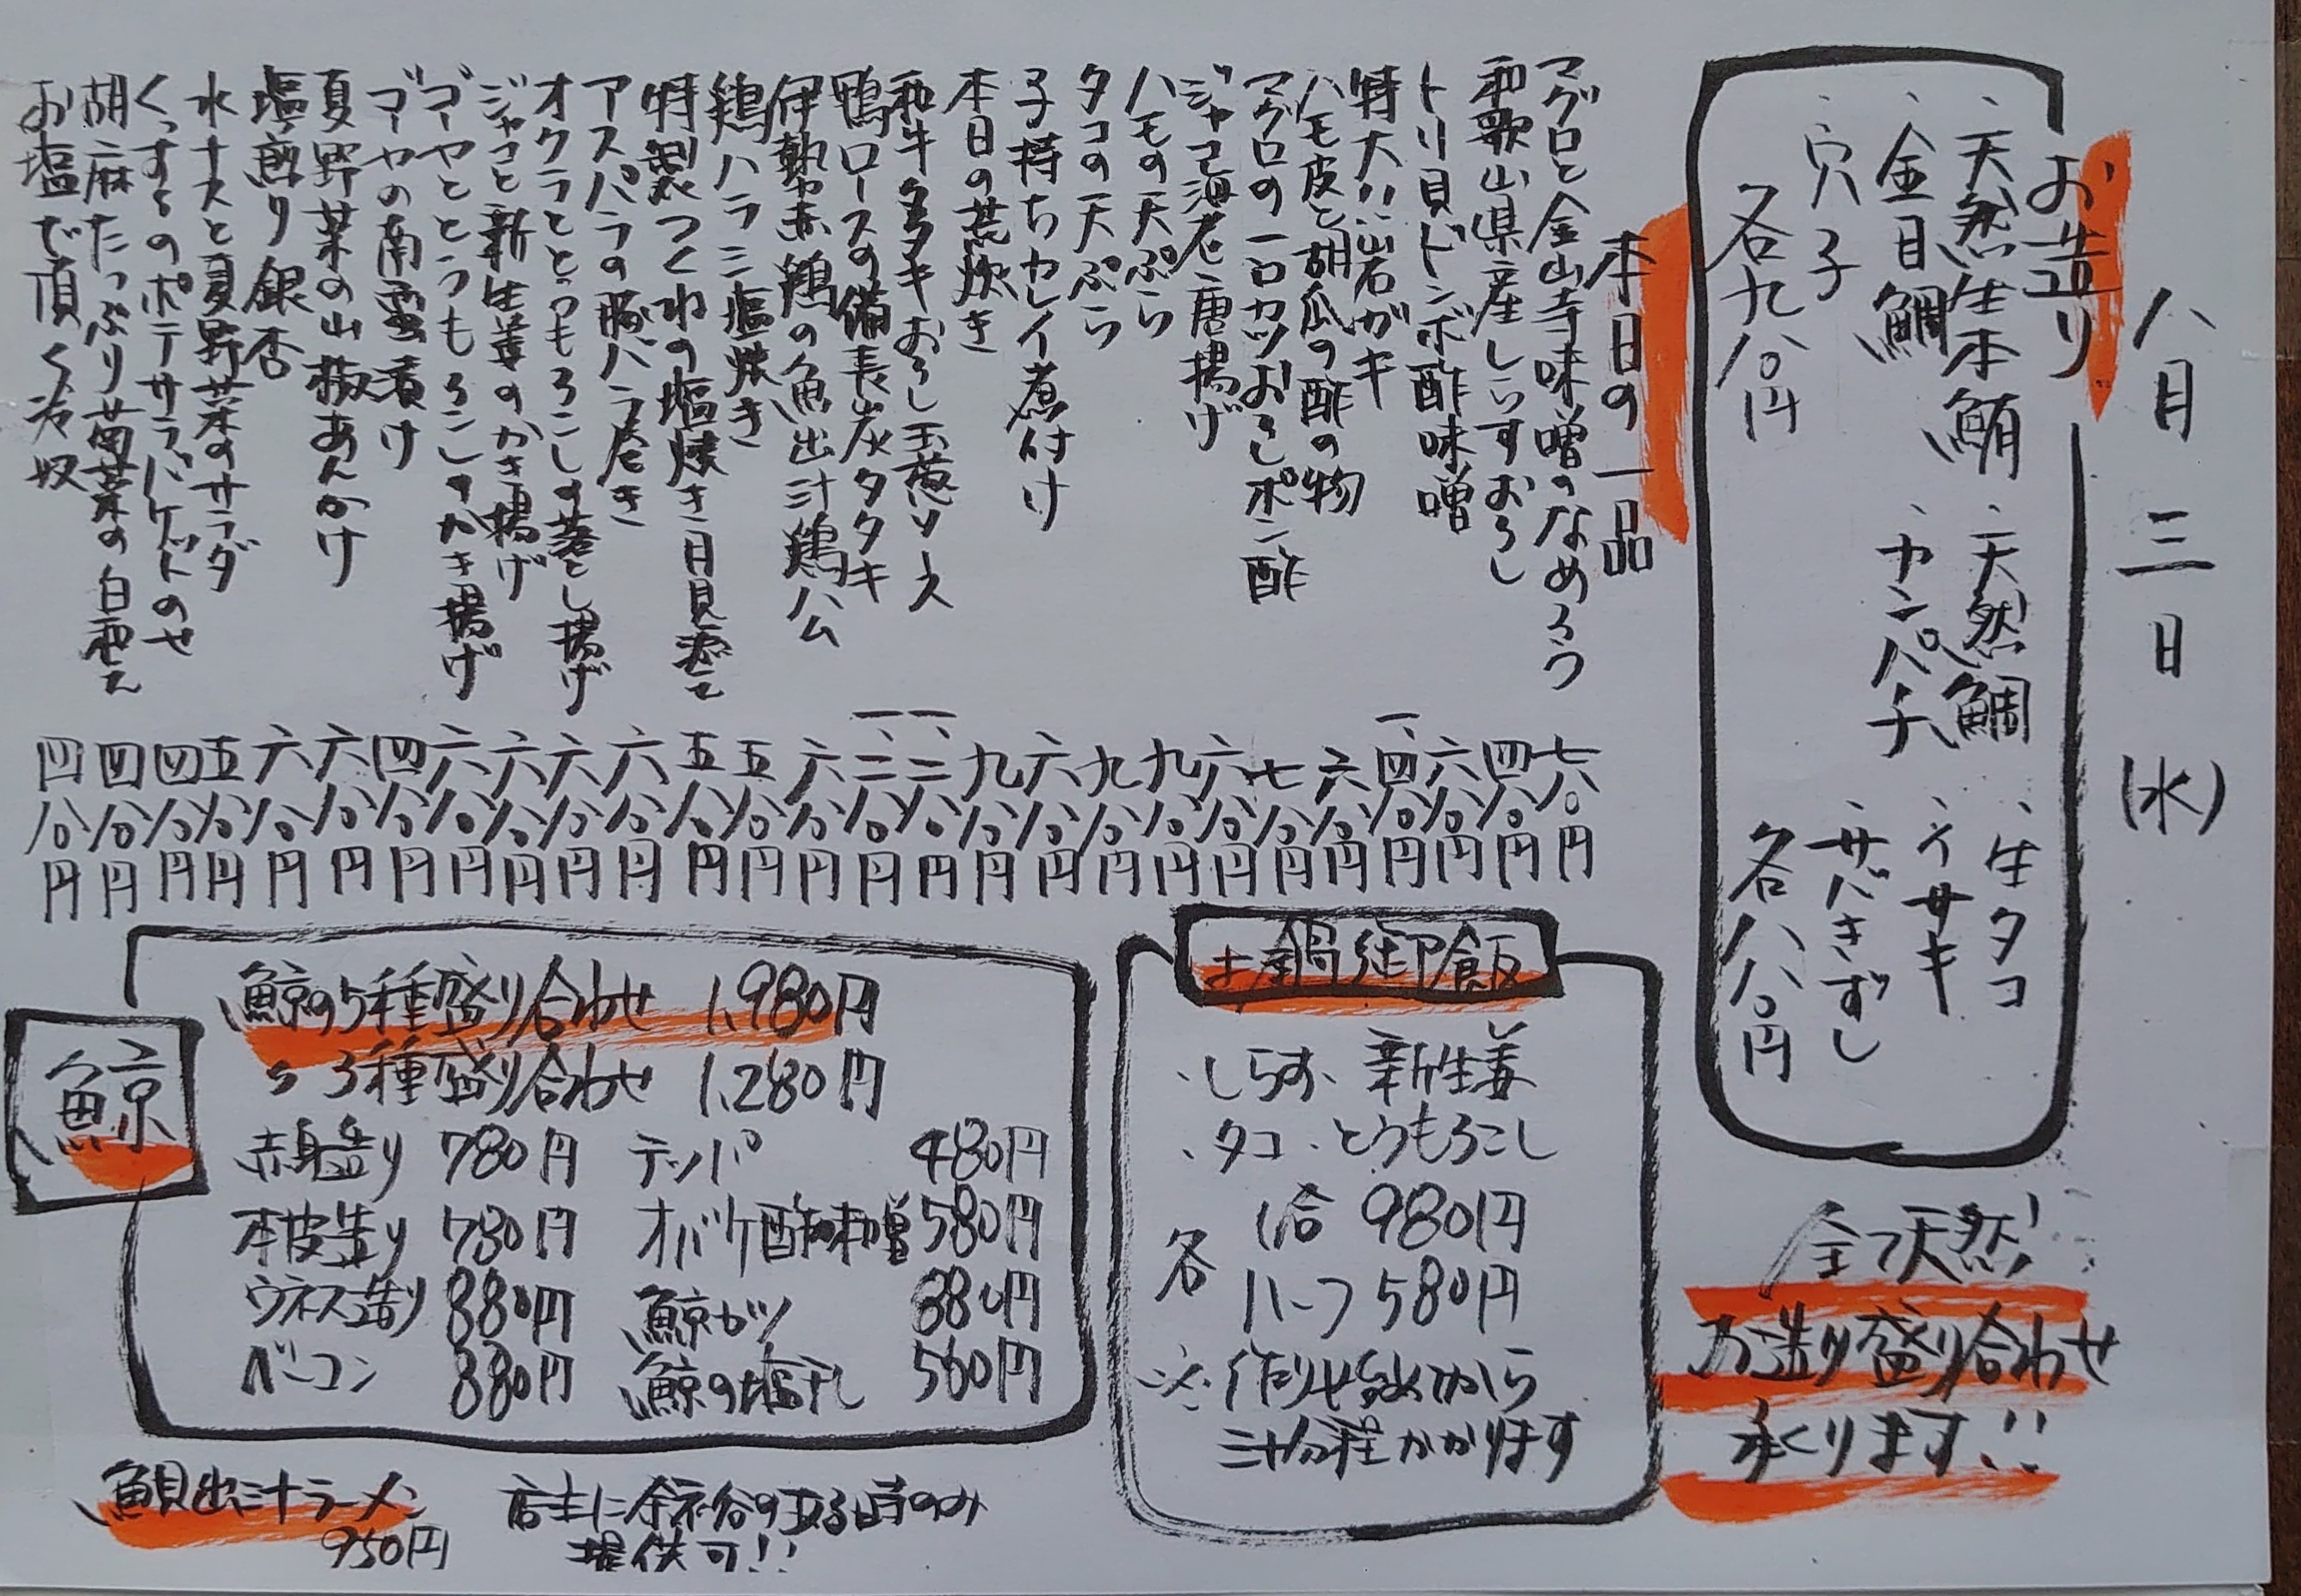 八月三日(水)
お造り
・天然生本鮪 ・天然鯛 ・生タコ
・金目鯛 ・カンパチ ・イサキ
・穴子 ・サバきずし
各九八〇円 各八八〇円
全て天然!
お造り盛り合わせ
承ります!!
本日の一品
マグロと金山寺味噌のなめろう 七八〇円
和歌山県産しらすおろし 四八〇円
トリ貝ドンボ酢味噌 六八〇円
特大!!岩ガキ 一、四八〇円
ハモ皮と胡瓜の酢の物 六八〇円
マグロの一口カツおろしポン酢 七八〇円
ジャコ海老唐揚げ 六八〇円
ハモの天ぷら 九八〇円
タコの天ぷら 九八〇円
子持ちカレイ煮付け 六八〇円
本日の荒炊き 九八〇円
和牛タタキおろし玉葱ソース 一、二八〇円
鴨ロースの備長炭タタキ 一、二八〇円
伊勢赤鶏の魚出汁鶏公 六八〇円
鶏ハラミ塩焼き 五八〇円
特製つくねの塩焼き 月見立て 五八〇円
アスパラの豚バラ巻き 六八〇円
オクラととうもろこしの落とし揚げ 六八〇円
ジャコと新生姜のかき揚げ 六八〇円
ゴーヤととうもろこしのかき揚げ 六八〇円
ゴーヤの南蛮漬け 四八〇円
夏野菜の山椒あんかけ 六八〇円
塩煎り銀杏 六八〇円
水ナスと夏野菜のサラダ 五八〇円
くんすろのポテサラバゲットのせ 四八〇円
胡麻たっぷり菊菜の白和え 四八〇円
お塩で頂く冷奴 四八〇円
土鍋御飯
・しらす・新生姜
・タコ・とうもろこし
各 1合 980円
ハーフ 580円
※作り始めから
三十分程かかります
鯨
鯨の5種盛り合わせ 1,980円
〃 3種盛り合わせ 1,280円
赤身造り 780円 テッパ 480円
本皮造り 780円 オバケ酢味噌 580円
ウネス造り 880円 鯨カツ 880円
ベーコン 880円 鯨の塩干し 560円
魚貝出汁ラーメン
950円
店主に余裕の有る時のみ
提供可!!